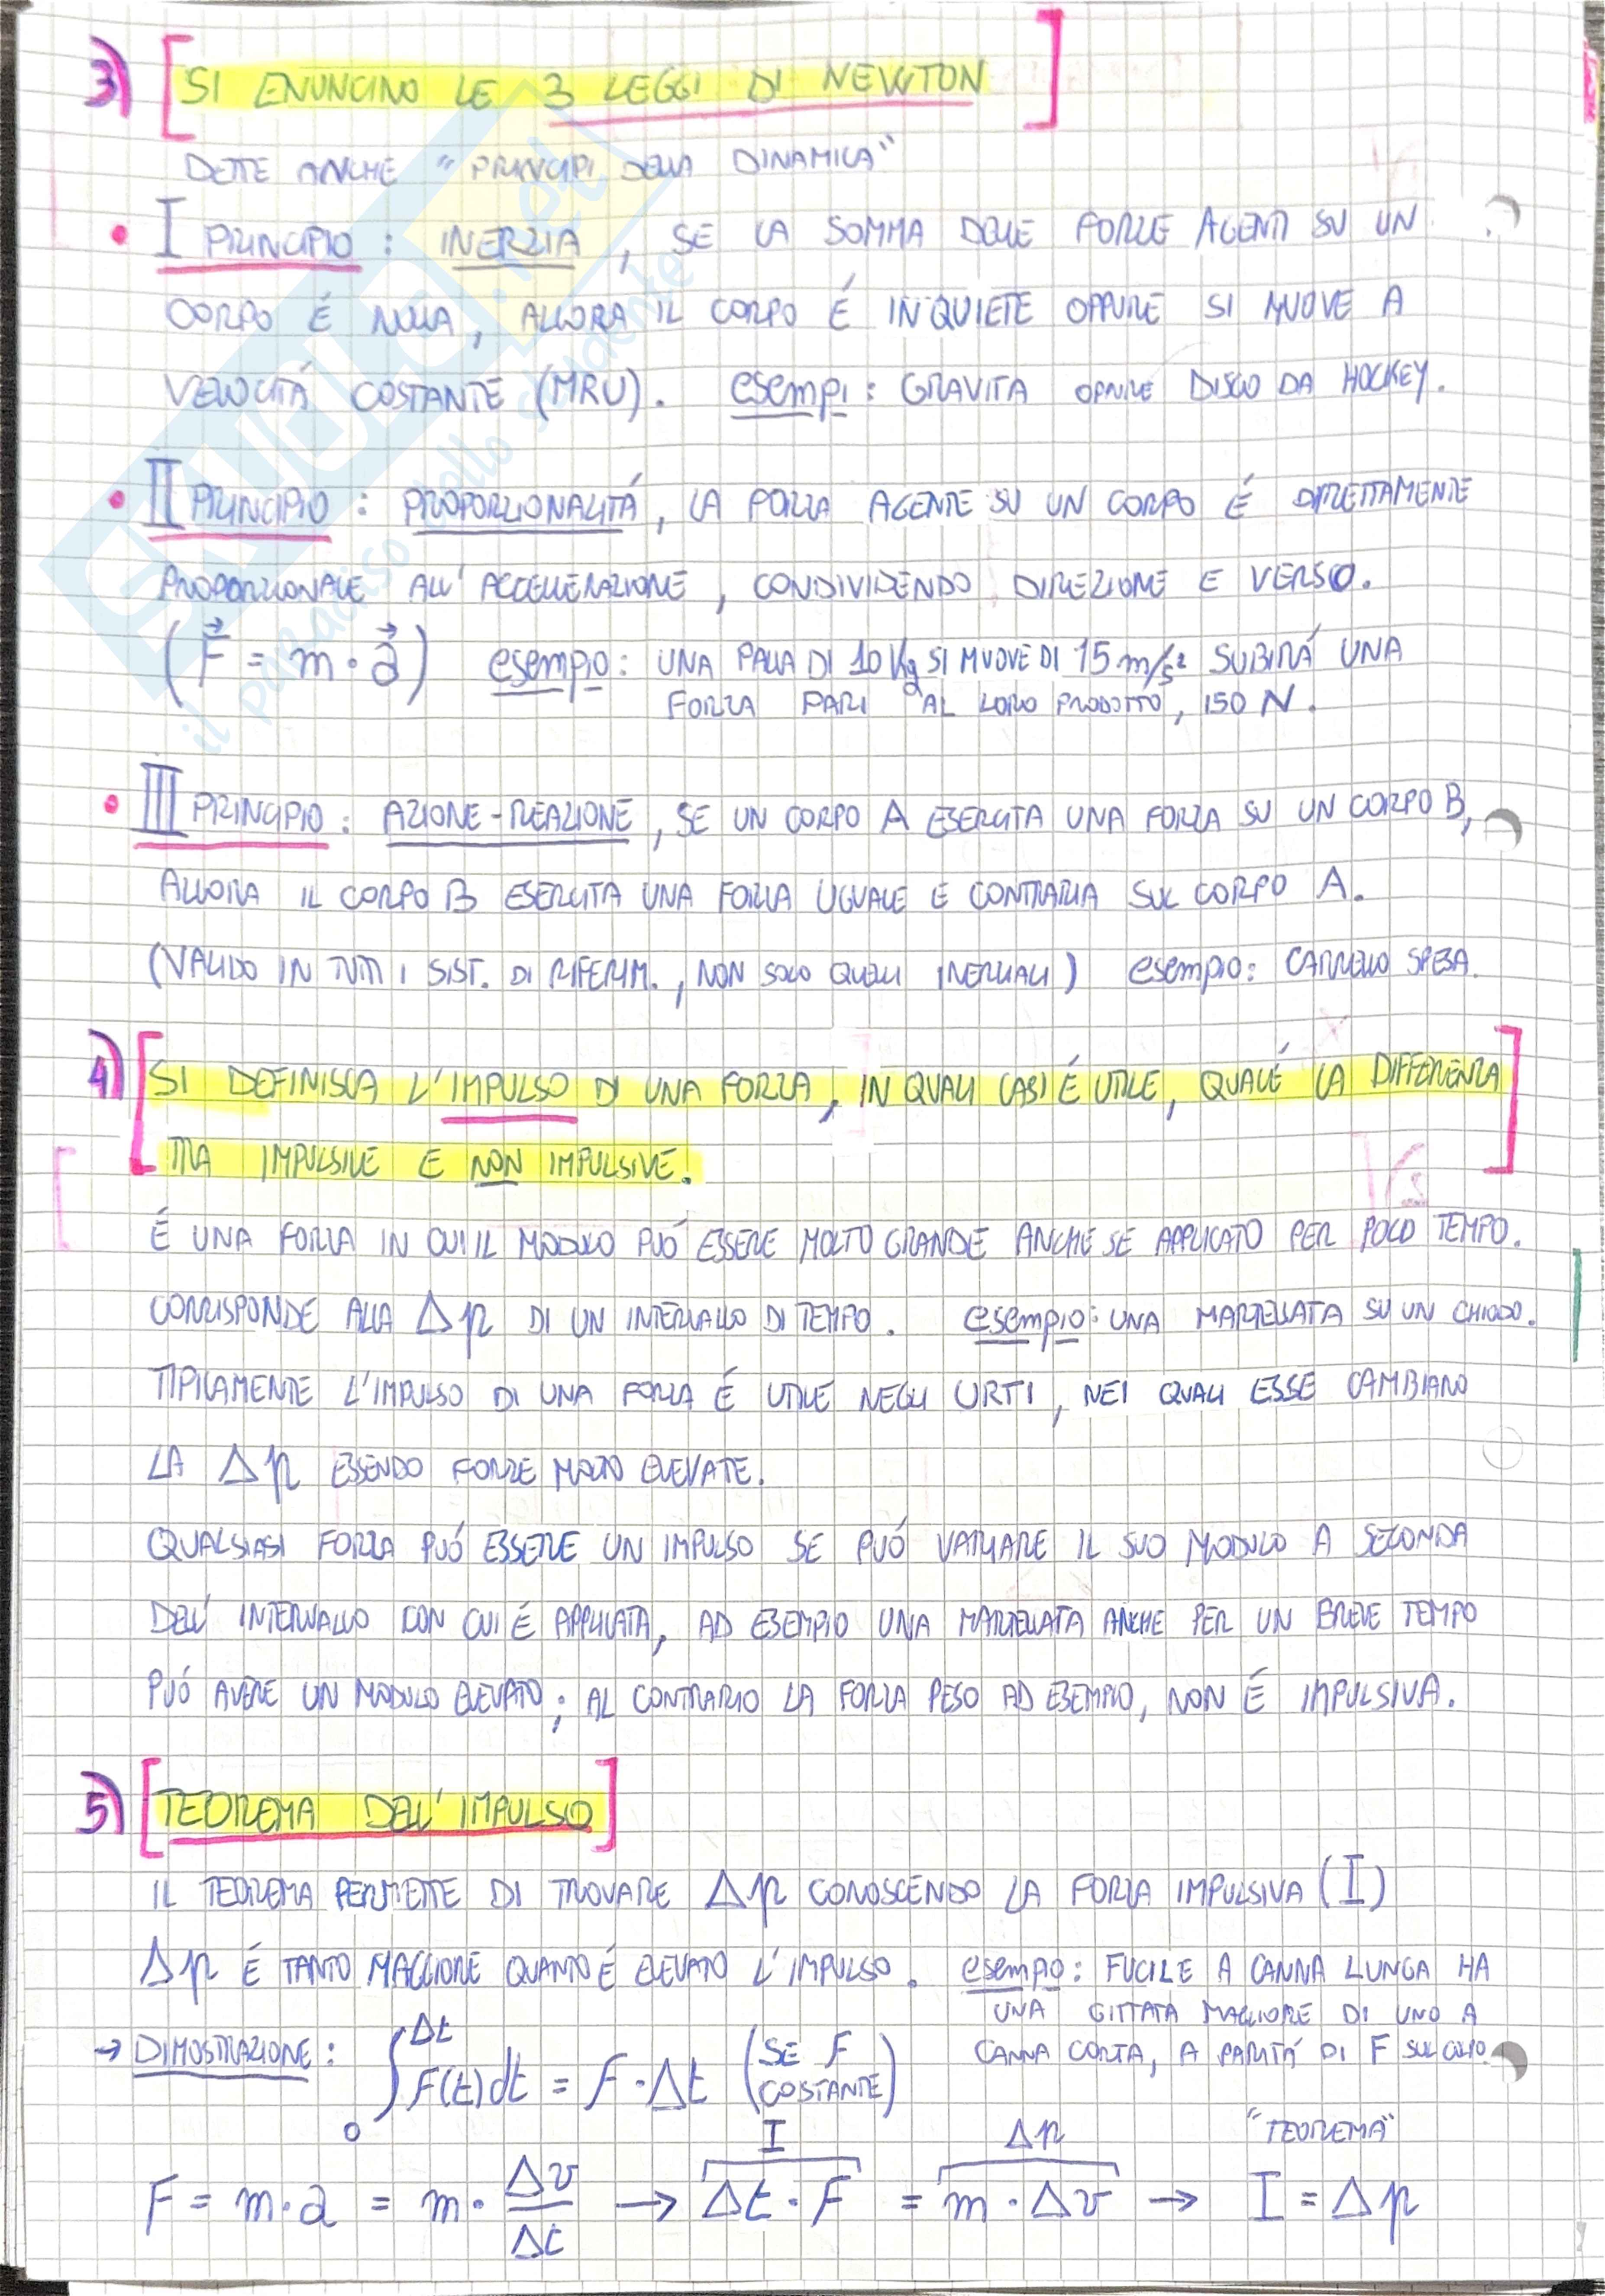 3) [SI ENUNCINO LE 3 LEGGI DI NEWTON]
DETTE ANCHE "PRINCIPI DELLA DINAMICA"
• I PRINCIPIO : INERZIA , SE LA SOMMA DELLE FORZE AGENTI SU UN
CORPO É NULLA, ALLORA IL CORPO É IN QUIETE OPPURE SI MUOVE A
VELOCITÁ COSTANTE (MRU). esempi : GRAVITA OPPURE DISCO DA HOCKEY.
• II PRINCIPIO : PROPORZIONALITÁ, LA FORZA AGENTE SU UN CORPO É DIRETTAMENTE
PROPORZIONALE ALL'ACCELLERAZIONE , CONDIVIDENDO DIREZIONE E VERSO.
(F⃗ = m · a⃗) esempio : UNA PALLA DI 10 Kg SI MUOVE DI 15 m/s² SUBIRÁ UNA
FORZA PARI AL LORO PRODOTTO, 150 N.
• III PRINCIPIO : AZIONE-REAZIONE , SE UN CORPO A ESERCITA UNA FORZA SU UN CORPO B,
ALLORA IL CORPO B ESERCITA UNA FORZA UGUALE E CONTRARIA SUL CORPO A.
(VALIDO IN TUTTI I SIST. DI RIFERIM. , NON SOLO QUELLI INERZIALI) esempio : CARRELLO SPESA.
4) [SI DEFINISCA L'IMPULSO DI UNA FORZA, IN QUALI CASI É UTILE, QUAL É LA DIFFERENZA
TRA IMPULSIVE E NON IMPULSIVE.]
É UNA FORZA IN CUI IL MODULO PUÓ ESSERE MOLTO GRANDE ANCHE SE APPLICATO PER POCO TEMPO.
CORRISPONDE ALLA Δp DI UN INTERVALLO DI TEMPO. esempio : UNA MARTELLATA SU UN CHIODO.
TIPICAMENTE L'IMPULSO DI UNA FORZA É UTILE NEGLI URTI , NEI QUALI ESSE CAMBIANO
LA Δp ESSENDO FORZE MOLTO ELEVATE.
QUALSIASI FORZA PUÓ ESSERE UN IMPULSO SE PUÓ VARIARE IL SUO MODULO A SECONDA
DELL'INTERVALLO CON CUI É APPLICATA, AD ESEMPIO UNA MARTELLATA ANCHE PER UN BREVE TEMPO
PUÓ AVERE UN MODULO ELEVATO; AL CONTRARIO LA FORZA PESO AD ESEMPIO, NON É IMPULSIVA.
5) [TEOREMA DELL'IMPULSO]
IL TEOREMA PERMETTE DI TROVARE Δp CONOSCENDO LA FORZA IMPULSIVA (I)
Δp É TANTO MAGGIORE QUANTO É ELEVATO L'IMPULSO. esempio : FUCILE A CANNA LUNGA HA
UNA GITTATA MAGGIORE DI UNO A
CANNA CORTA, A PARITÁ DI F SUL COLPO.
→ DIMOSTRAZIONE : ∫₀^Δt F(t)dt = F · Δt (SE F COSTANTE)
I Δp "TEOREMA"
F = m·a = m · Δv/Δt → Δt · F = m · Δv → I = Δp
SKUOLA.net
il paradiso dello studente